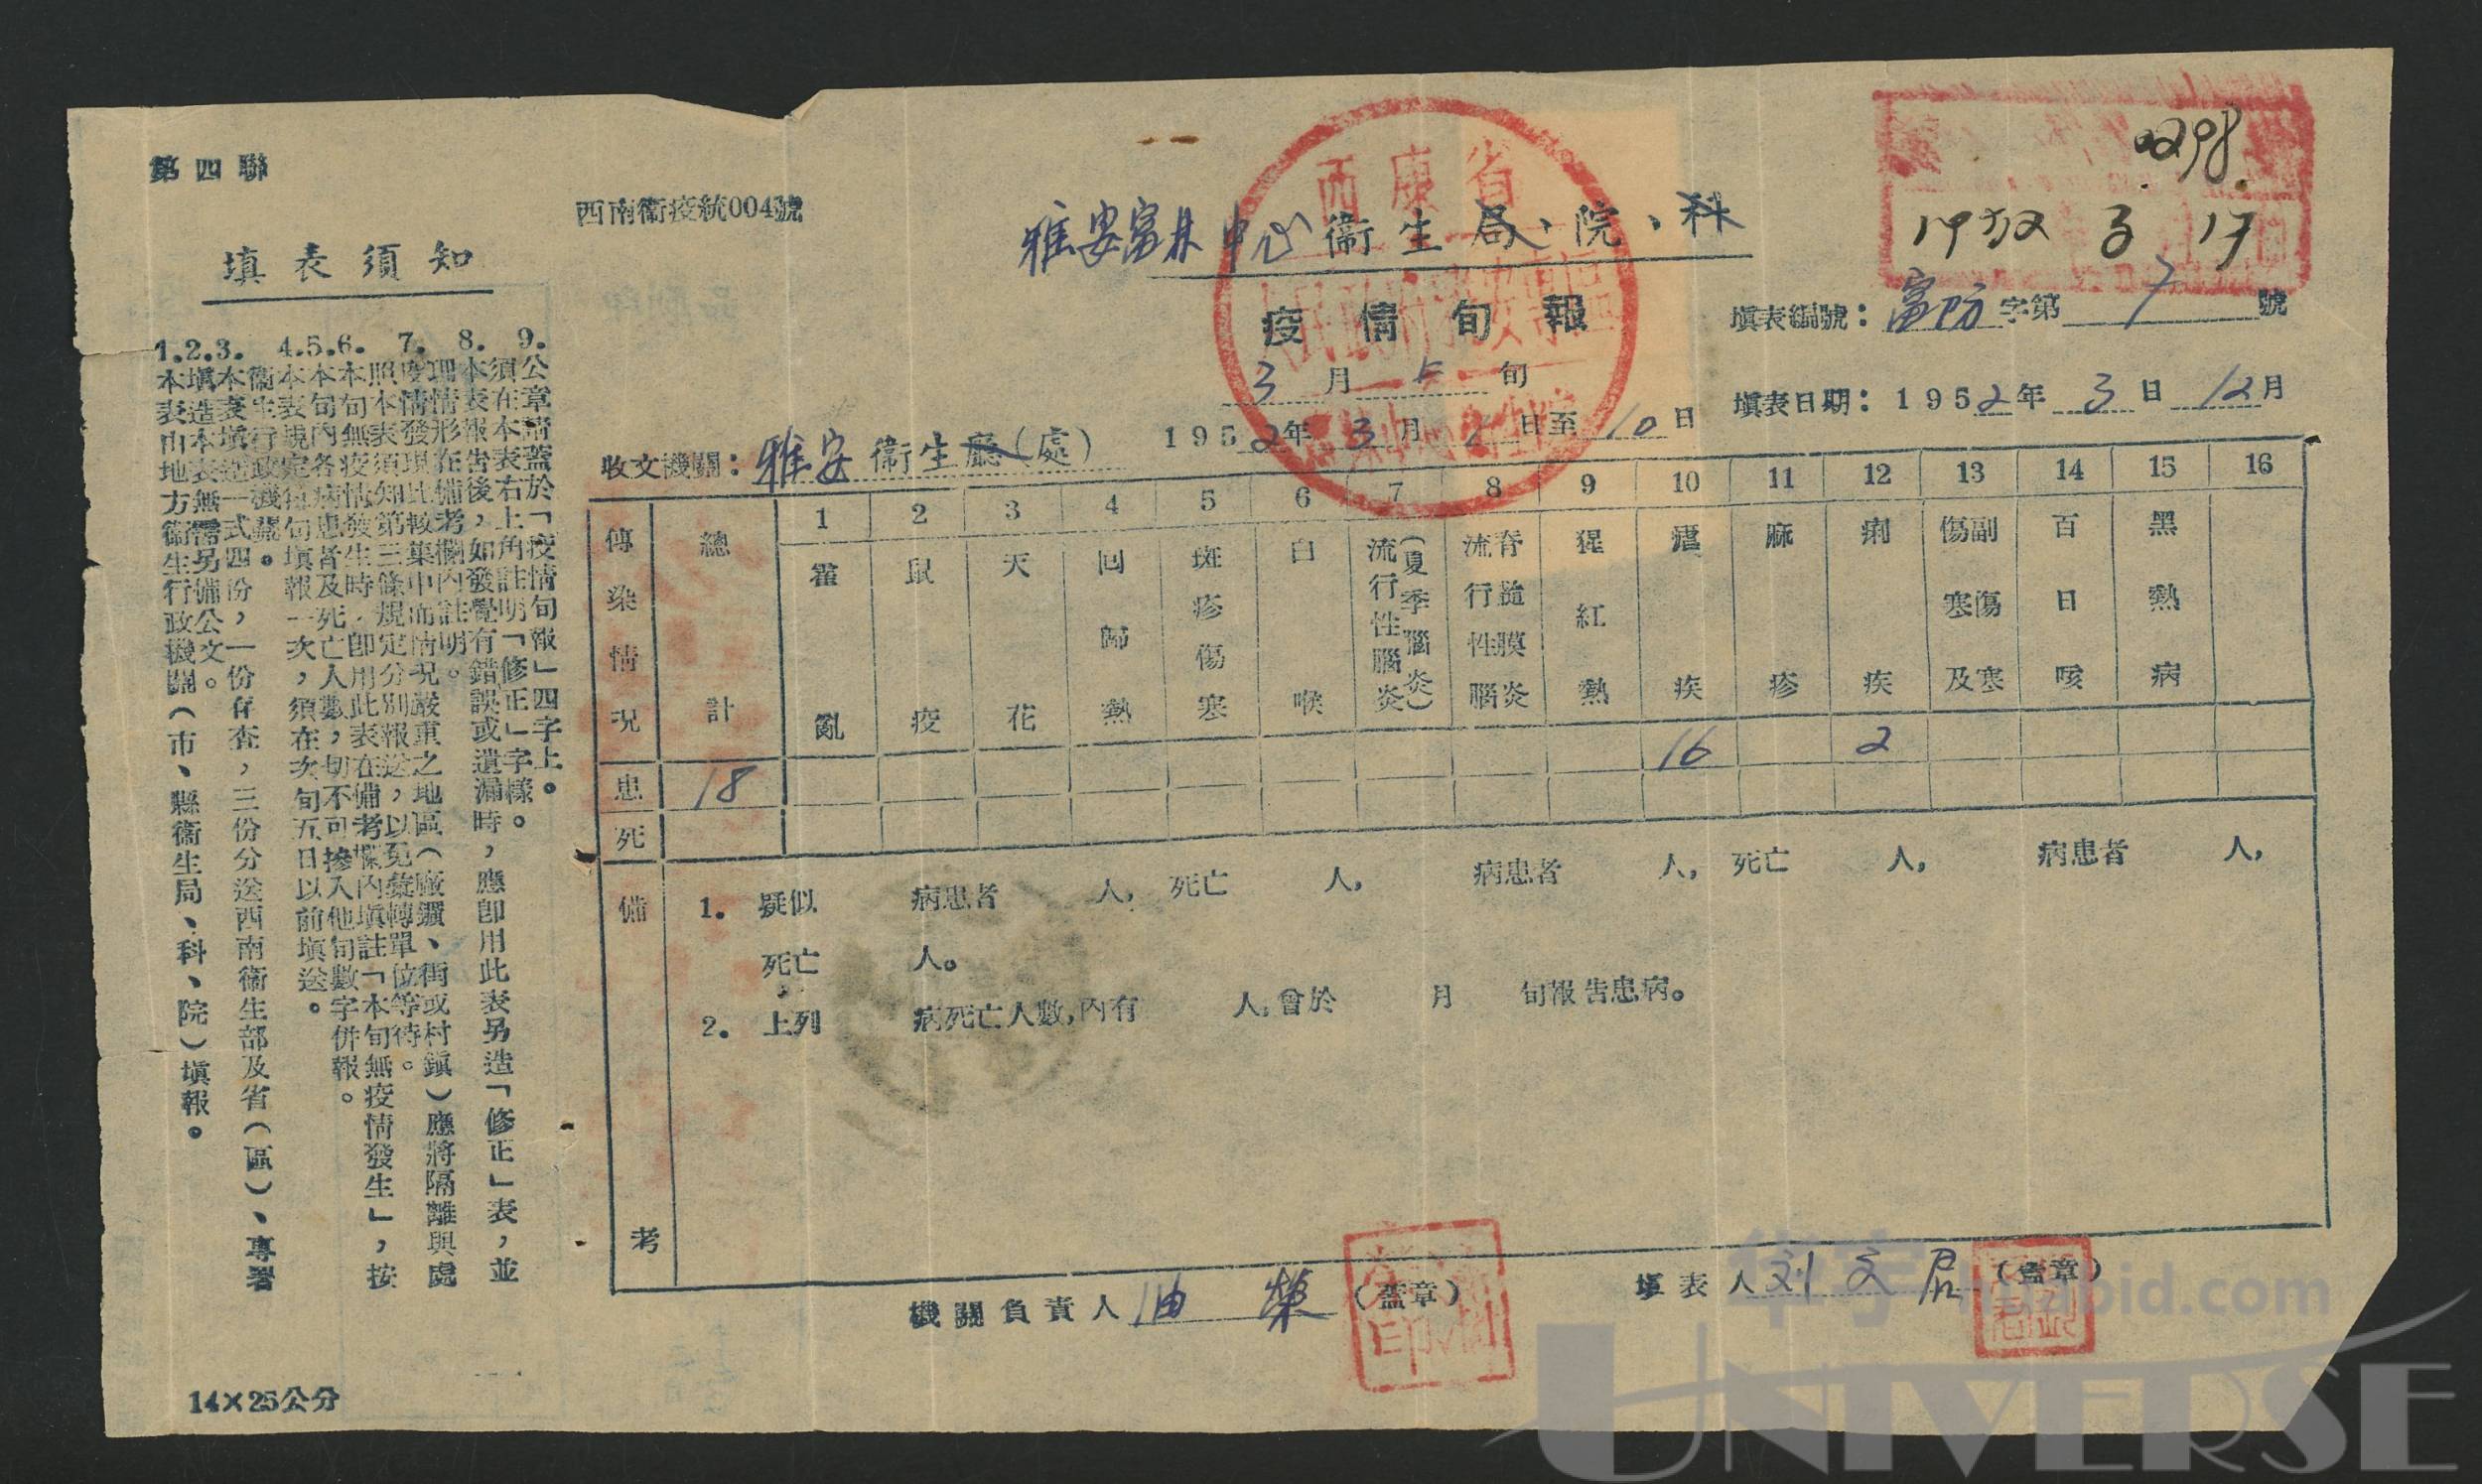 第四聯
西南衞疫統004號
填表須知
1. 本表由地方衞生行政機關(市、縣衞生局、科、院)填報。
2. 填造本表無需另備公文。
3. 本表填造一式四份,一份存查,三份分送西南衞生部及省(區)、專署衞生行政機關。
4. 本表規定每旬填報一次,須在次旬五日以前填送。
5. 本旬內各病患者及死亡人數,切不可摻入他旬數字併報。
6. 本旬無疫情發生時,卽用此表在備考欄內填註「本旬無疫情發生」,按照本表須知第三條規定分別報送,以免彙轉單位等待。
7. 疫情發現比較集中而情况嚴重之地區(廠礦、街或村鎮)應將隔離與處理情形在備考欄內註明。
8. 本表報告後,如發覺有錯誤或遺漏時,應卽用此表另造「修正」表,並須在本表右上角註明「修正」字樣。
9. 公章請蓋於「疫情旬報」四字上。
14×25公分
雅安富林中心衞生局、院、科
疫情旬報
3月上旬
西康省
0298
1952 3 17
填表編號:富防字第7號
填表日期:1952年3日12月
收文機關:雅安衞生廳(處)
1952年3月1日至10日
傳染情况 總計 1 霍亂 2 鼠疫 3 天花 4 回歸熱 5 斑疹傷寒 6 白喉 7 流行性腦炎(夏季腦炎) 8 流行性腦脊髓膜炎 9 猩紅熱 10 瘧疾 11 麻疹 12 痢疾 13 傷寒及副傷寒 14 百日咳 15 黑熱病 16
患 18 16 2
死
備考
1. 疑似 病患者 人, 死亡 人, 病患者 人, 死亡 人, 病患者 人,
死亡 人。
2. 上列 病死亡人數,內有 人,曾於 月 旬報告患病。
機關負責人 (蓋章)
填表人 刘文 (蓋章)
印
华宇 huabid.com
UNIVERSE